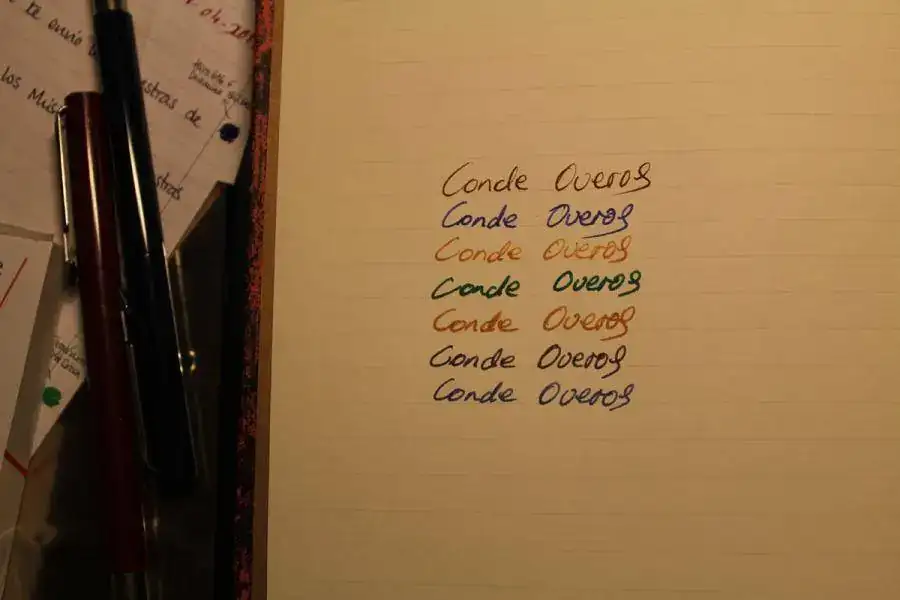 04-201
te envío
estras de
los Mús
stras
Conde Overos
Conde Overos
Conde Overos
Conde Overos
Conde Overos
Conde Overos
Conde Overos